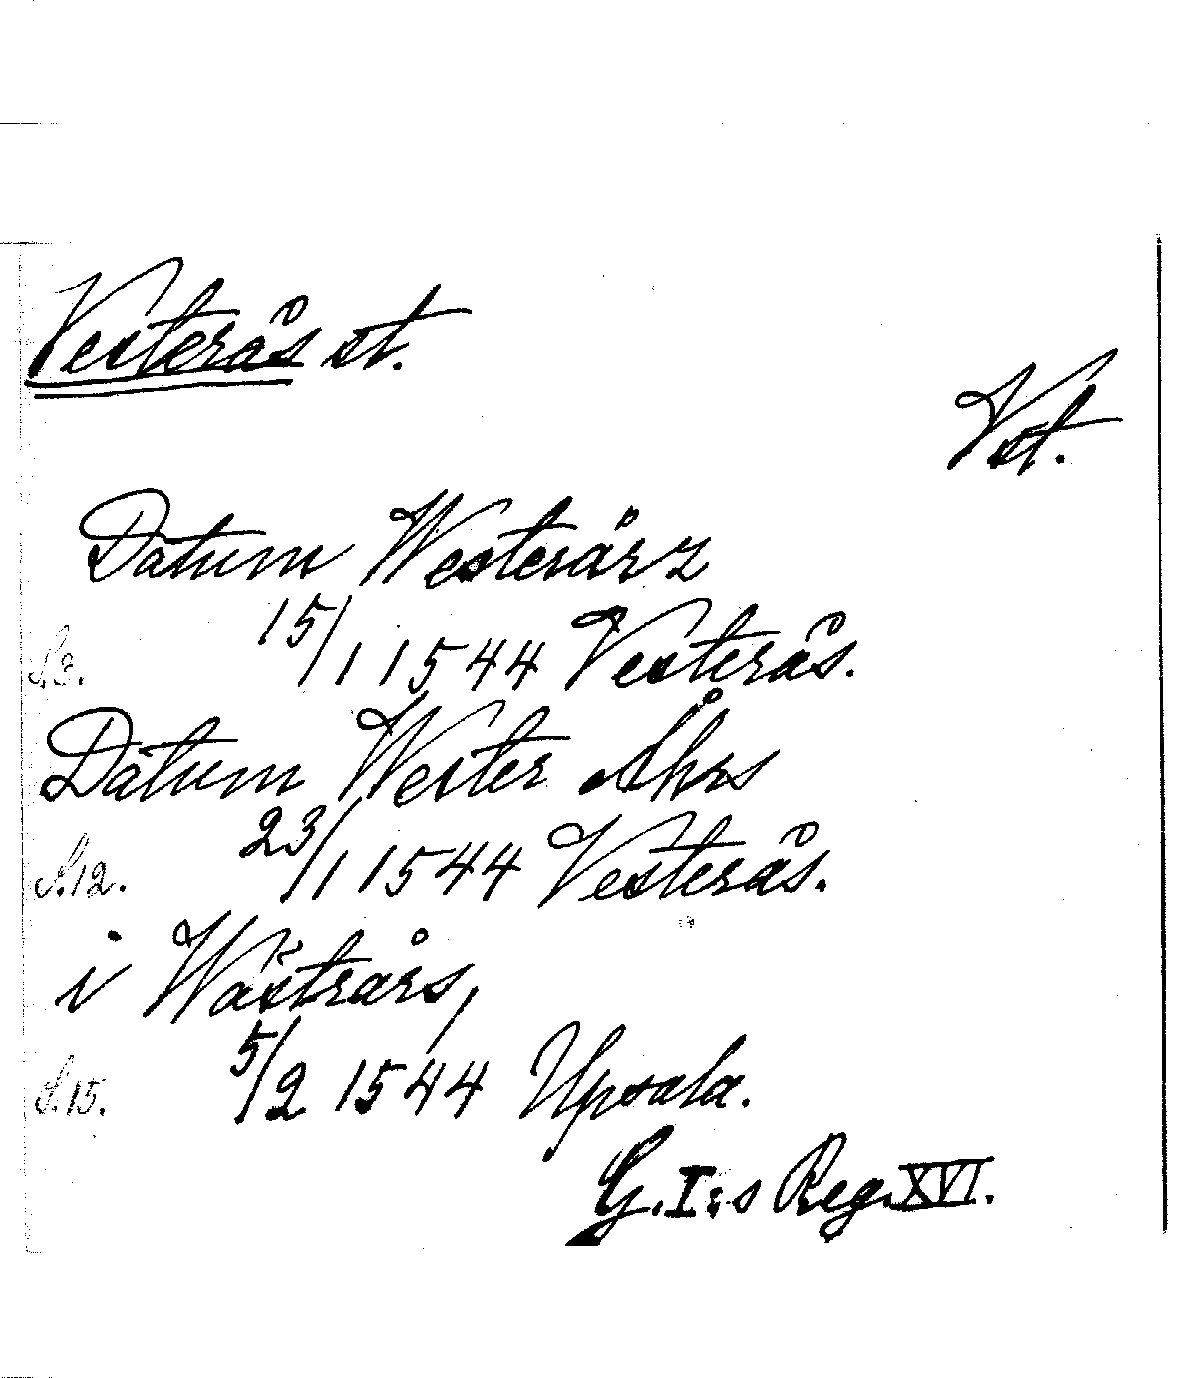 Vesterås st.
Vst.
Datum Westerårz
S.3. 15/1 1544 Vesterås.
Datum Wester Åhrs
S.12. 23/1 1544 Vesterås.
i Wästrårs,
S.15. 5/2 1544 Upsala.
G.I:s Reg. XVI.